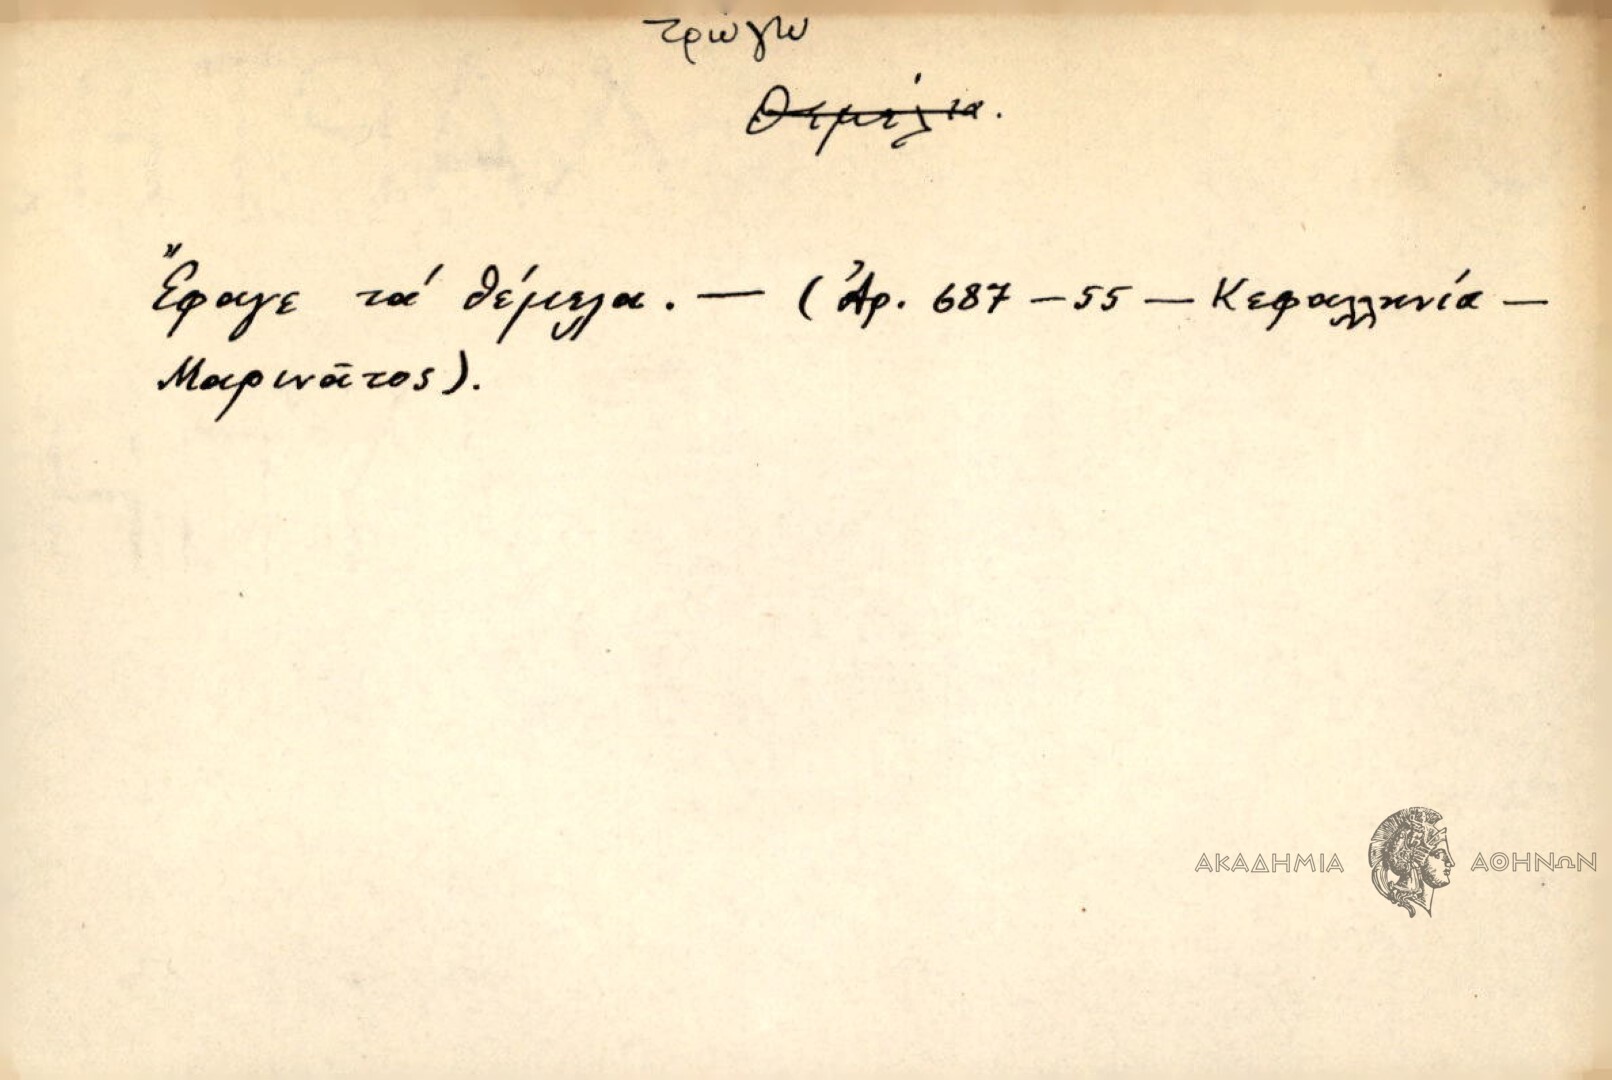 τρώγω
θεμέλια.
Ἔφαγε τά θέμελα. — (Ἀρ. 687 – 55 — Κεφαλληνία —
Μαρινᾶτος).
ΑΚΑΔΗΜΙΑ ΑΘΗΝΩΝ